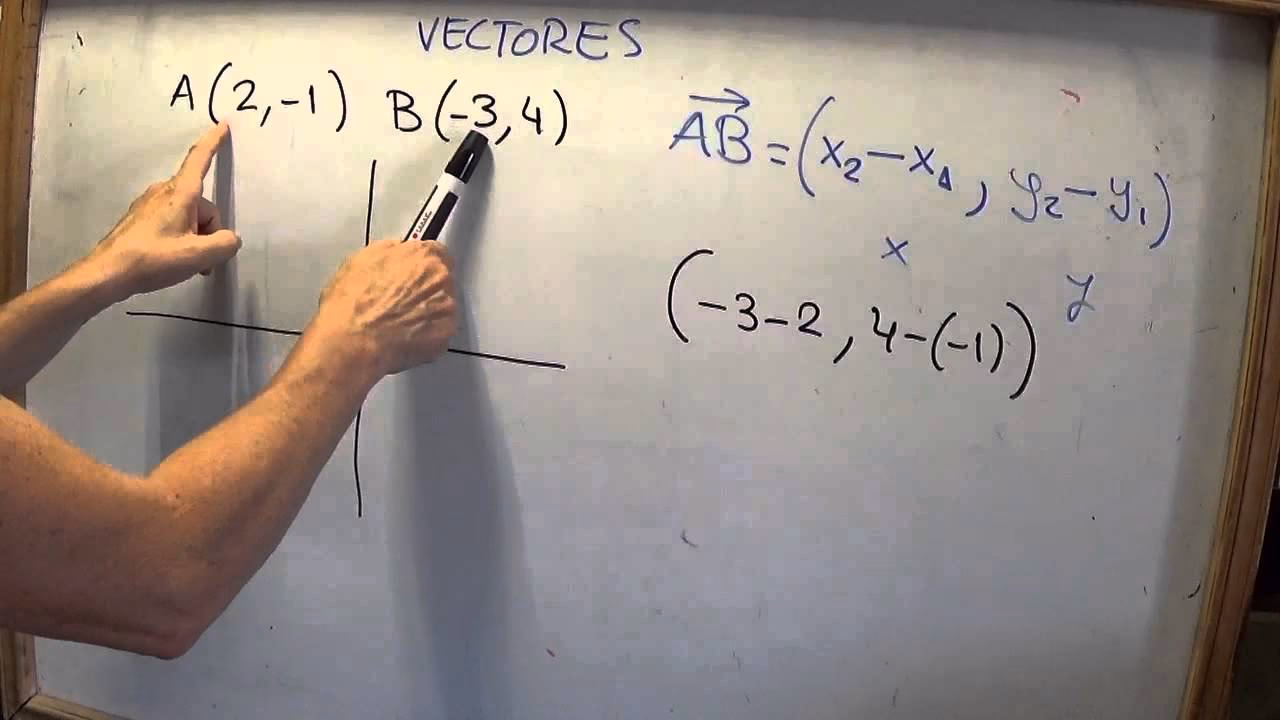 VECTORES
A(2,-1) B(-3,4)
AB=(x₂-x₁, y₂-y₁)
x
y
(-3-2, 4-(-1))